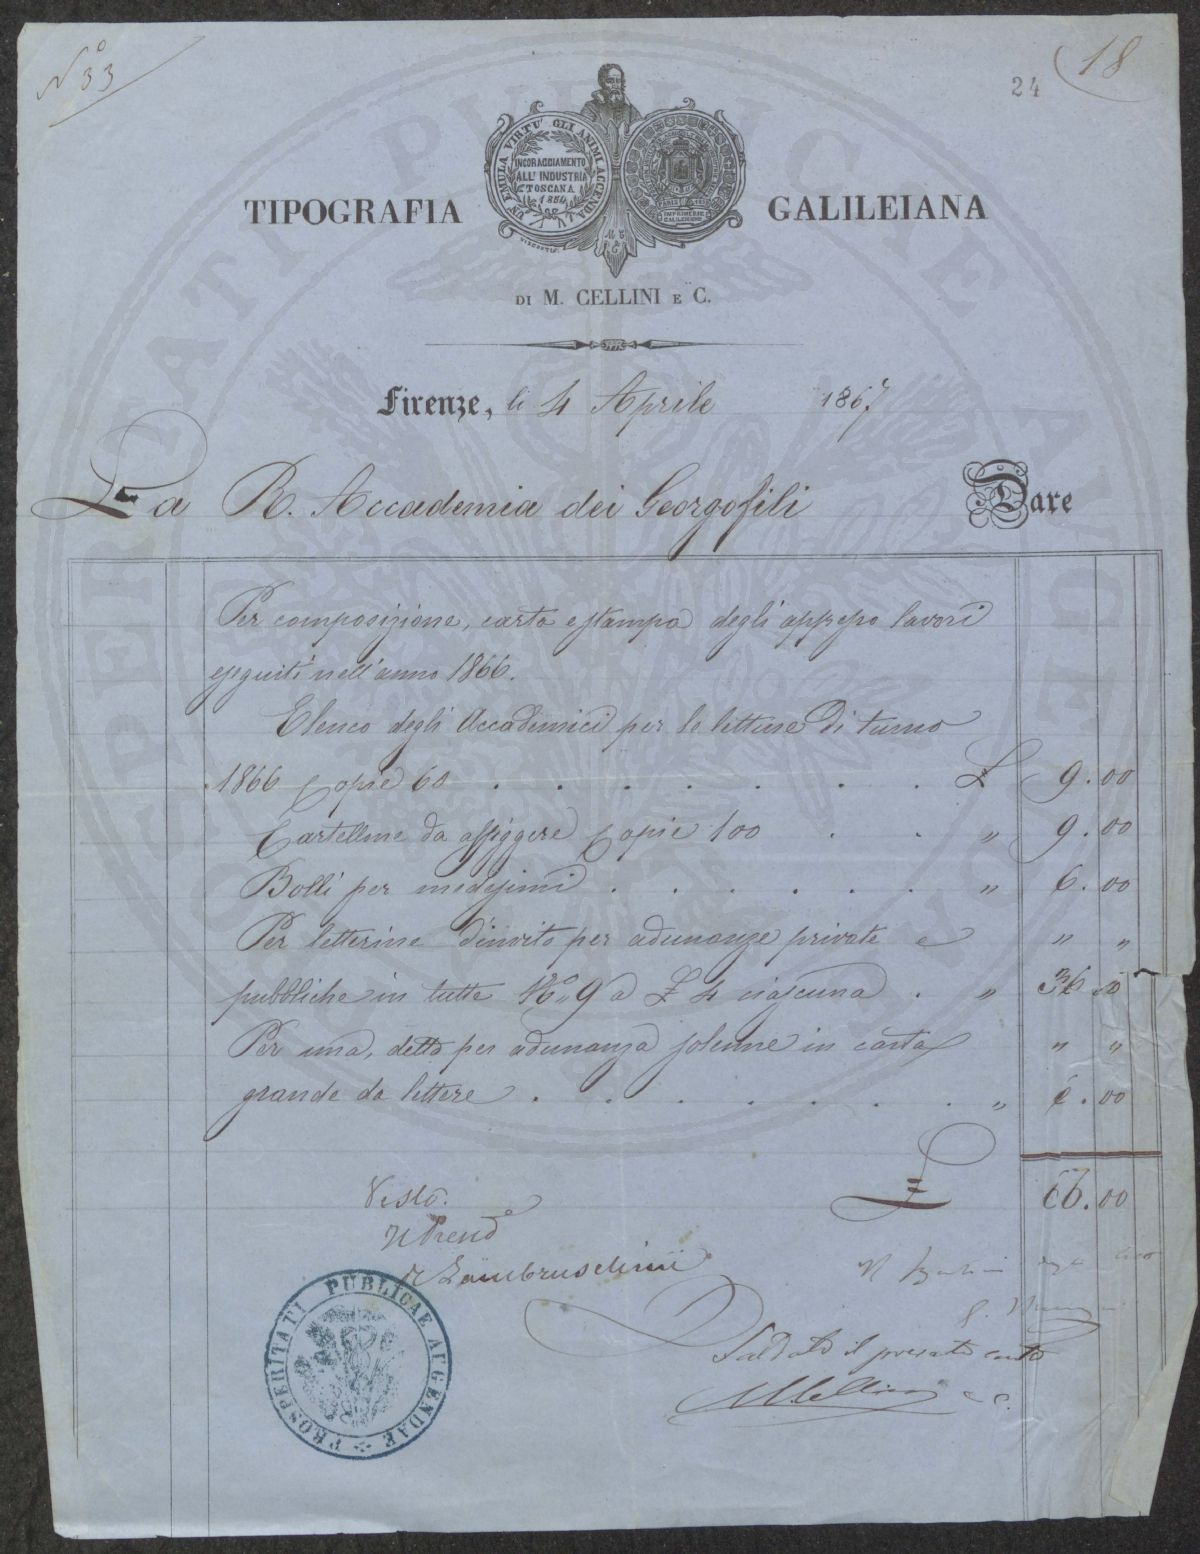 N.° 33
18
24
UN EMULA VIRTU' GLI ANIMI ACCENDA
INCORAGGIAMENTO
ALL' INDUSTRIA
TOSCANA
1854
IMPRIMERIE
GALILEIENNE
TIPOGRAFIA GALILEIANA
DI M. CELLINI E C.
Firenze, li 4 Aprile 1867
La R. Accademia dei Georgofili Dare
Per composizione, carta e stampa degli appresso lavori
eseguiti nell'anno 1866.
Elenco degli Accademici per le letture di turno
1866 Copie 60 . . . . . . . £ 9.00
Cartellone da affiggere Copie 100 . . " 9.00
Bolli per medesimi . . . . . . " 6.00
Per letterine d'invito per adunanze private e " "
pubbliche in tutte N.° 9 a £ 4 ciascuna . " 36.00
Per una, detta per adunanza solenne in carta " "
grande da lettere . . . . . . . " .00
£ .00
Visto.
Il Presid.e
R Lambruschini
Saldato il presente conto
MCellini e C.
PROSPERITATI PUBLICAE AUGENDAE
PROSPERITATI PUBLICAE AUGENDAE